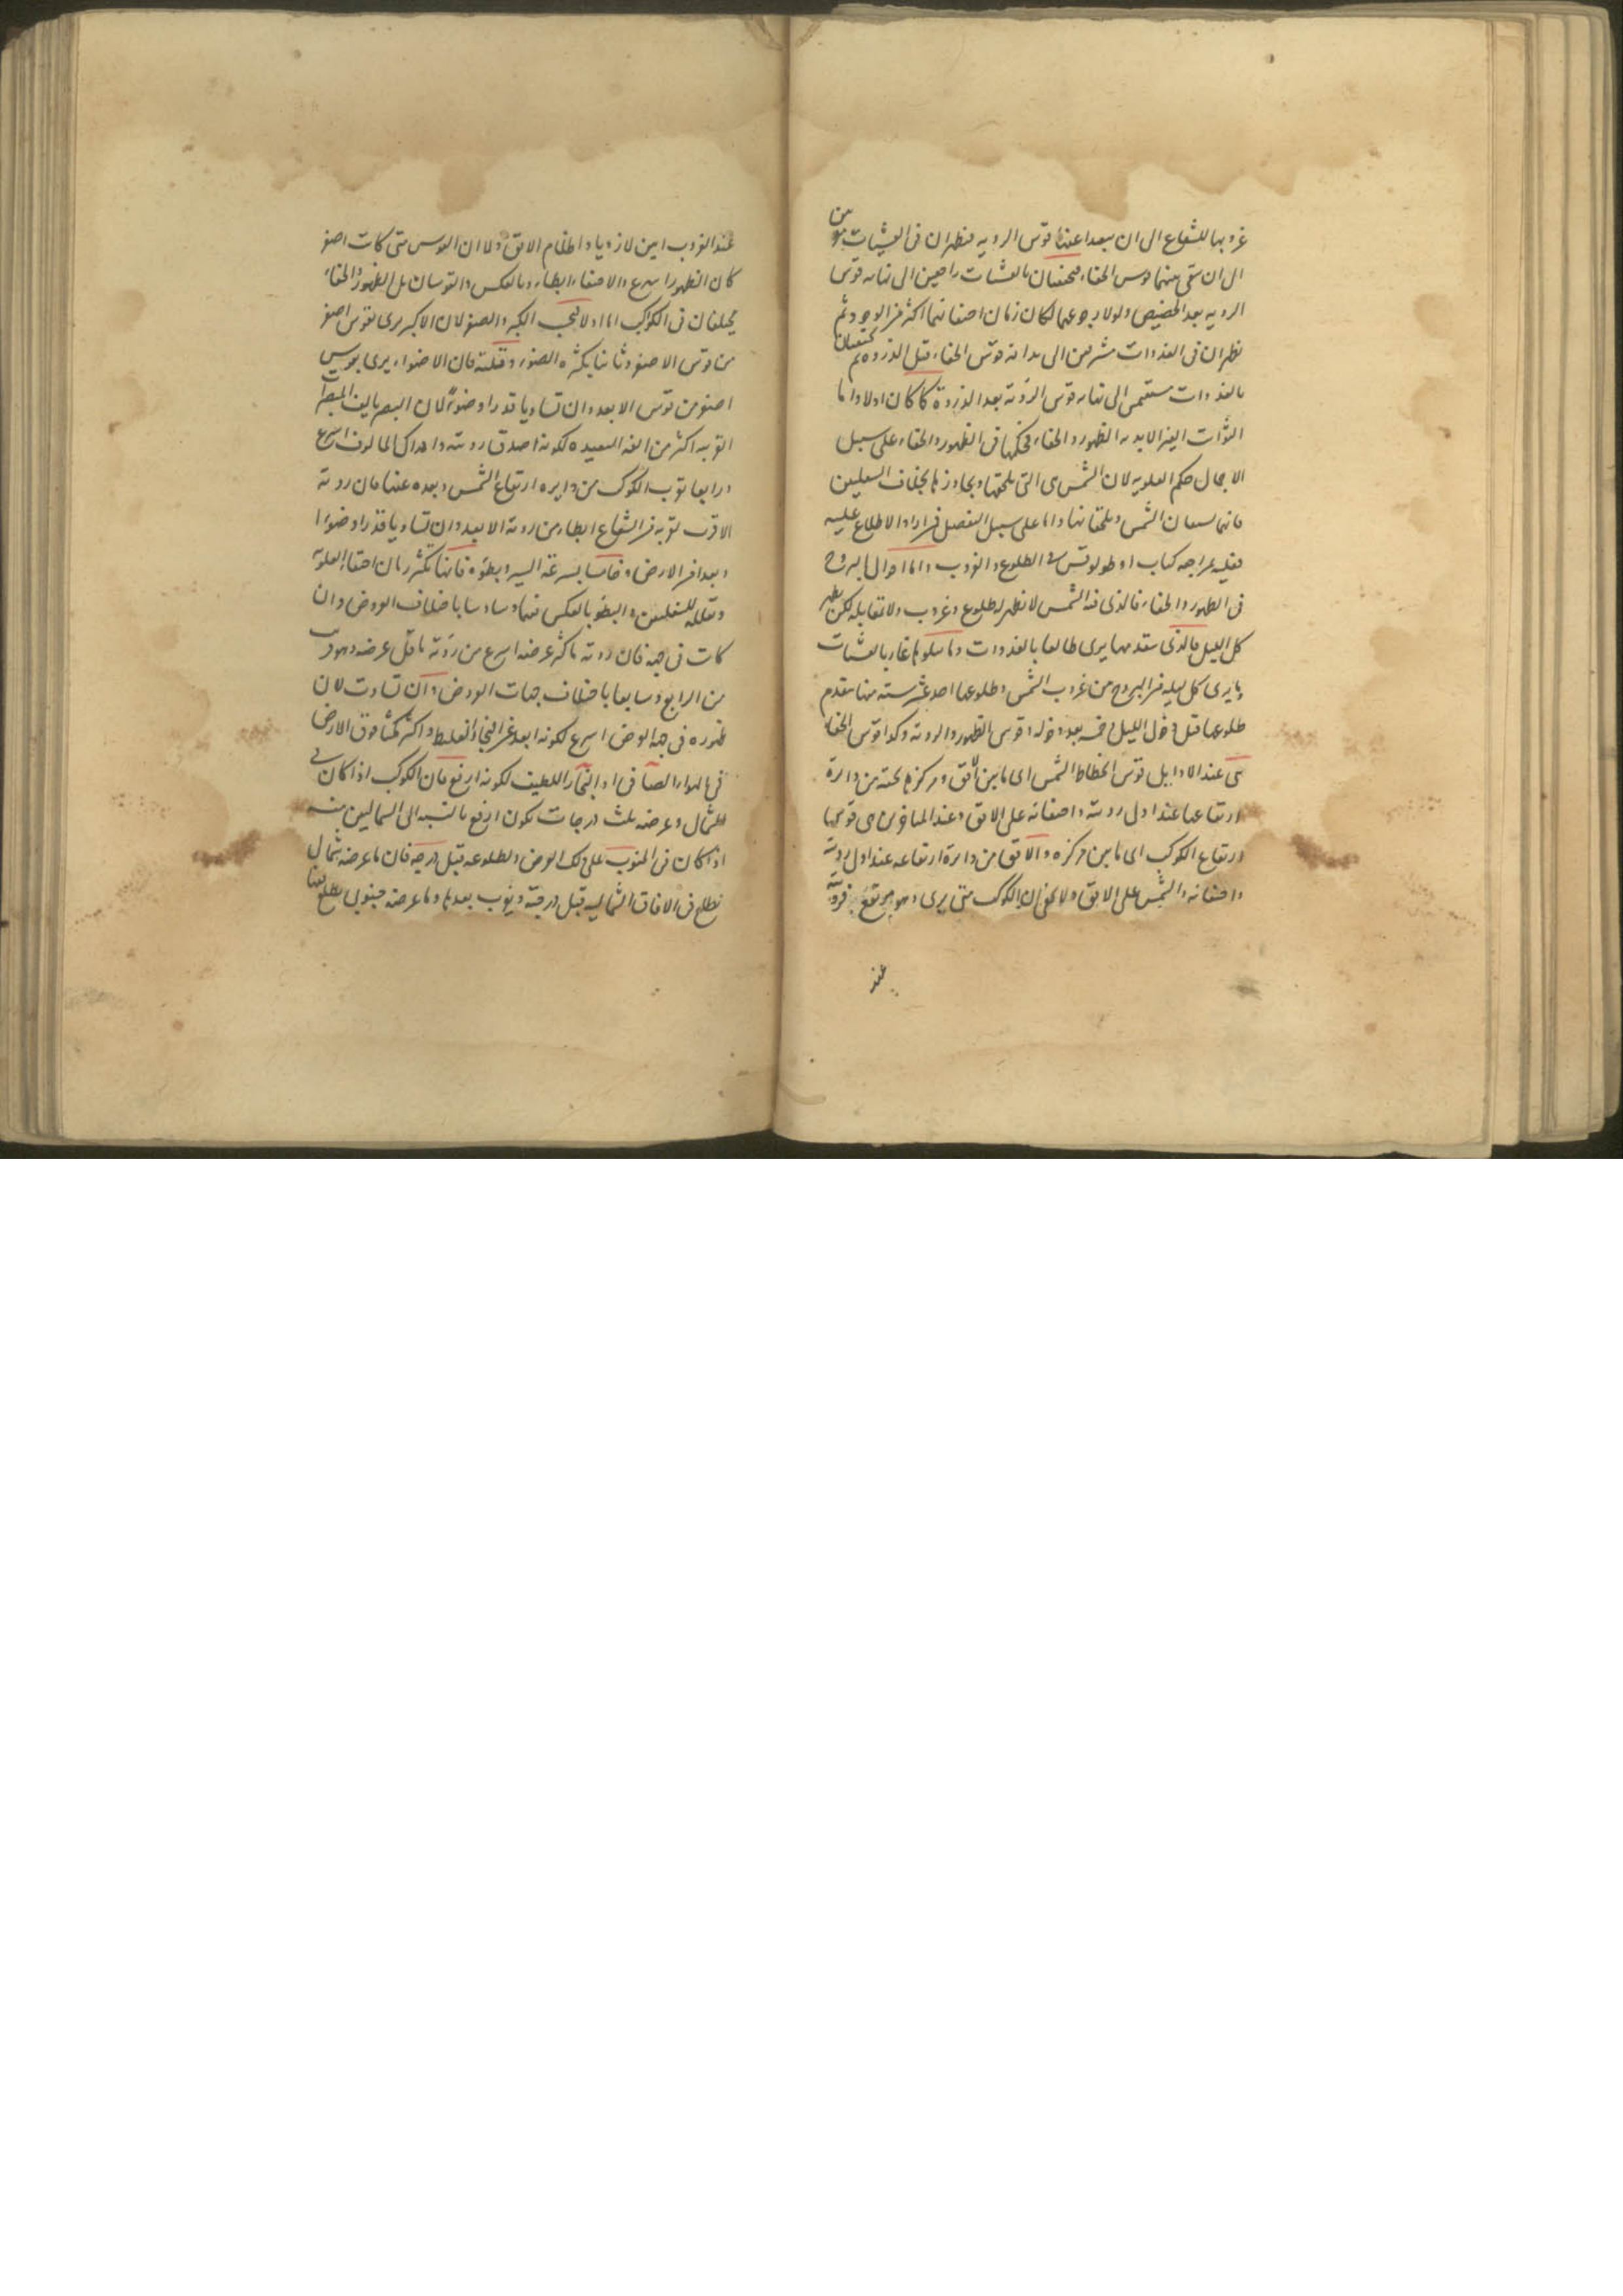 غروبها للشعاع الى ان يبعدا عنها قوس الرويه فيظهران فى العشيات
الى ان يبقى بينهما قوس الخفاء فيختفيان بالعشيات راجعين الى نهايه قوس
الرويه بعد الحضيض ولولا رجوعهما لكان زمان اختفائهما اكثر من الوجود ثم
يظهران فى الغدوات مشرقين الى بدايه قوس الخفاء قبل الذروه ثم يختفيان
بالغدوات الى نهايه قوس الرؤيه بعد الذروة كما كان اولا واما
الثوابت الغير الابديه الظهور والخفاء فحكمها فى الظهور والخفاء على سبيل
الاجمال حكم العلويه لان الشمس هى التى تلحقها وتجاوزها بخلاف السفليين
فانهما يسبقان الشمس ويلحقانها واما على سبيل التفصيل فمن اراد الاطلاع عليه
فعليه بمراجعه كتاب اوطولوقس فى الطلوع والغروب واما احوال البروج
فى الظهور والخفاء فالذى فيه الشمس لا يظهر له طلوع وغروب ولا لمقابله لكن يظهر
كل الليل فالذى يتقدمها يرى طالعا بالغدوات وما يتلوها غاربا بالعشيات
وما يرى كل ليله من البروج من غروب الشمس وطلوعها احد عشر سته منها يتقدم
طلوعها قبل دخول الليل وخمسه بعد دخوله وقوس الظهور والرويه وكذا قوس الخفاء
هى عند الاوايل قوس انخطاط الشمس اى ما بين الافق ومركزها تحته من دائرة
ارتفاعها عند اول رويته واختفائه على الافق وعند المتاخرين هى قوسها
وارتفاع الكوكب اى ما بين مركزه والافق من دائرة ارتفاعه عند اول رويته
واختفائه والشمس على الافق ولا يخفى ان الكوكب متى يرى وهو مرتفع فرويته
عند
عند الغروب ابين لازدياد اظلام الافق ولا ان القوس متى كانت اصغر
كان الظهور اسرع والاختفاء ابطاء وبالعكس والقوسان بل الظهور والخفاء
يختلفان فى الكواكب اما اولا فبحسب الكبر والصغر لان الاكبر يرى بقوس اصغر
من قوس الاصغر وثانيا بكثره الضوء وقلته فان الاضواء يرى بقوس
اصغر من قوس الابعد وان تساويا قدرا وضوءً لان البصر يالف المبصرات
القريبه اكثر من الفه البعيده لكونه اصدق رويته وادراك المالوف اسرع
ورابعا بقرب الكوكب من دايره ارتفاع الشمس وبعده عنها فان رويته
الاقرب لقربه من الشعاع ابطاء من رويه الابعد وان تساويا قدرا وضوءا
وبعدا من الارض وخامسا بسرعه السير وبطؤه فانها تكثر زمان اختفاء العلويه
وتقلله للسفليين والبطؤ بالعكس فيهما وسادسا باختلاف العروض وان
كانت فى جهة فان رويته باكثر عرضه اسرع من رؤيته باقل عرضه وهو قريب
من الرابع وسابعا باختلاف جهات العروض وان تساوت لان
ظهوره فى جهة العرض اسرع لكونه ابعد عن البخار الغليظ واكثر مكثا فوق الارض
فى الهواء الصافى او البخار اللطيف لكونه ارفع فان الكوكب اذا كان فى
الشمال وعرضه ثلث درجات يكون ارفع بالنسبه الى الشماليين منه
اذا كان فى الجنوب على ذلك العرض ولطلوعه قبل درجته فان ما عرضه شمالى
يطلع فى الافاق الشماليه قبل درجته ويغرب بعدها وما عرضه جنوبى يطلع بعدها